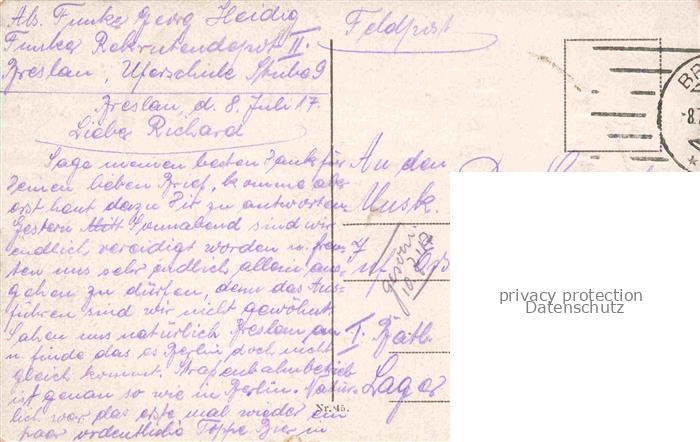 Abs. Funker Georg Heidig
Funker Rekrutendepot II.
Breslau, Uferschule Stube 9
Feldpost
Breslau, d. 8. Juli 17.
Lieber Richard
Sage meinen besten Dank für
Deinen lieben Brief, komme aber
erst heut dazu Dir zu antworten
Gestern Sonnabend sind wir
endlich vereidigt worden u. freu-
ten uns sehr endlich allein aus-
gehen zu dürfen, denn das Aus-
führen sind wir nicht gewöhnt.
Sahen uns natürlich Breslau an
u. finde das es Berlin doch nicht
gleich kommt. Straßenbahnbetrieb
ist genau so wie in Berlin. Natür-
lich war das erste mal wieder ein
paar ordentliche Töppe Bier
An den
Musk.
I. Batl.
Lager
Nr. 45.
BR
-8.
privacy protection
Datenschutz